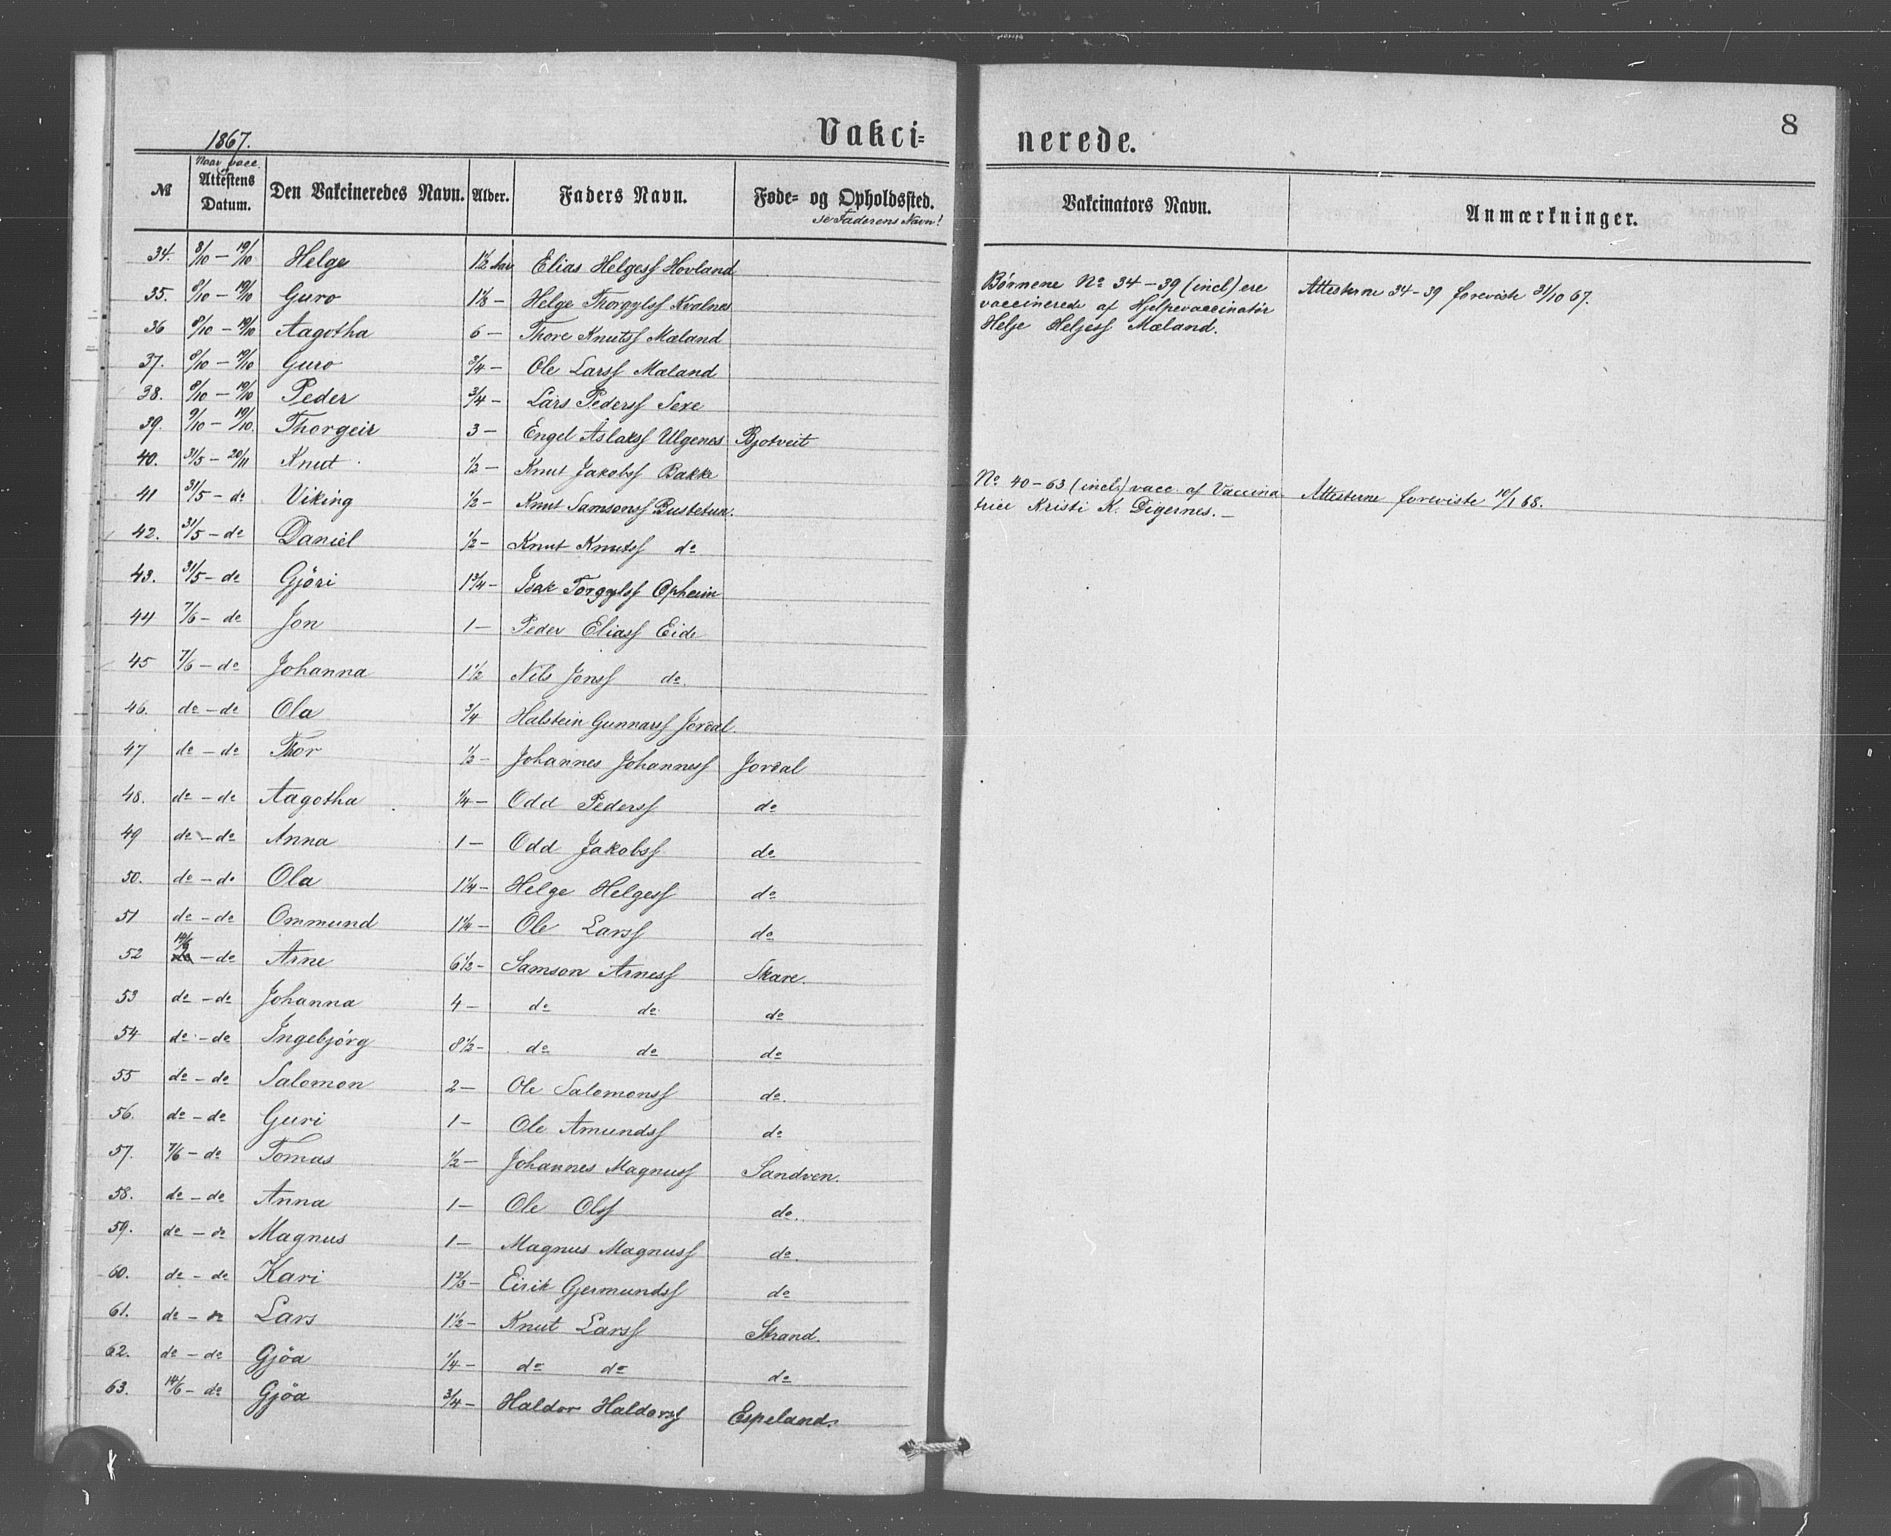 8
1867.
Vakci= nerede.
№ | Naar vacc. Attestens Datum. | Den Vakcineredes Navn. | Alder. | Faders Navn. | Føde- og Opholdssted. se Faderens Navn! | Vakcinators Navn. | Anmærkninger.
34. 8/10 – 19/10 Helge 1½ Aar Elias Helgess Hovland
35. 8/10 – 19/10 Guro 1⅛ – Helge Thorgylss Kvalnes
36 8/10 – 19/10 Aagotha 6 – Thore Knutss Mæland
37. 8/10 – 19/10 Guro ¾ – Ole Larss Mæland
38. 8/10 – 19/10 Peder ¾ – Lars Pederss Sexe
39. 9/10 – 19/10. Thorgeir 3 – Engel Aslakss Ulgenes Bjotveit
40. 31/5 – 20/11 Knut ½ – Knut Jakobss Bakke
41 31/5 – do Viking ½ – Knut Samsonss Bustetun.
42. 31/5 – do Daniel ½ – Knut Knutss do
43. 31/5 – do Gjöri 1¾ – Isak Torgylss Opheim
44 7/6 – do Jon 1 – Peder Eliass Eide
45 7/6 – do Johanna 1½ Nils Jonss do.
46. do – do Ola ¾ Halstein Gunnarss Jordal.
47 do – do Thor ½ – Johannes Johanness Jordal
48. do – do Aagotha ¼ – Odd Pederss do
49 do – do Anna 1 – Odd Jakobss do
50. do – do Ola 1¼ – Helge Helgess do
51 do – do Ommund 1¼ – Ole Larss do
52 14/6 – do Arne 6½ – Samson Arness Skare.
53 do – do Johanna 4 – do do do
54 do – do Ingebjörg 8½ – do do do
55 do – do Salomon 2 – Ole Salomonss do.
56. do – do Guri 1 – Ole Amundss do
57. 7/6 – do Tomas ½ – Johannes Magnuss Sandven.
58. do – do Anna 1 – Ole Olss do.
59. do – do Magnus 1 – Magnus Magnuss do
60. do – do Kari 1⅔ – Eirik Gjermundss do
61. do – do Lars 1½ – Knut Larss Strand.
62. do – do Gjöa ¼ – do do do
63. 14/6 – do Gjöa ¾ – Haldor Haldorss Espeland.
Børnene No 34 – 39 (incl) ere
vaccinerede af Hjelpevaccinatør
Helje Heljess Mæland.
Attesterne 34-39 foreviste 31/10 67.
No 40 – 63 (incls) vacc. af Vaccina-
trice Kristi K. Digernes. –
Attesterne foreviste 10/1 68.